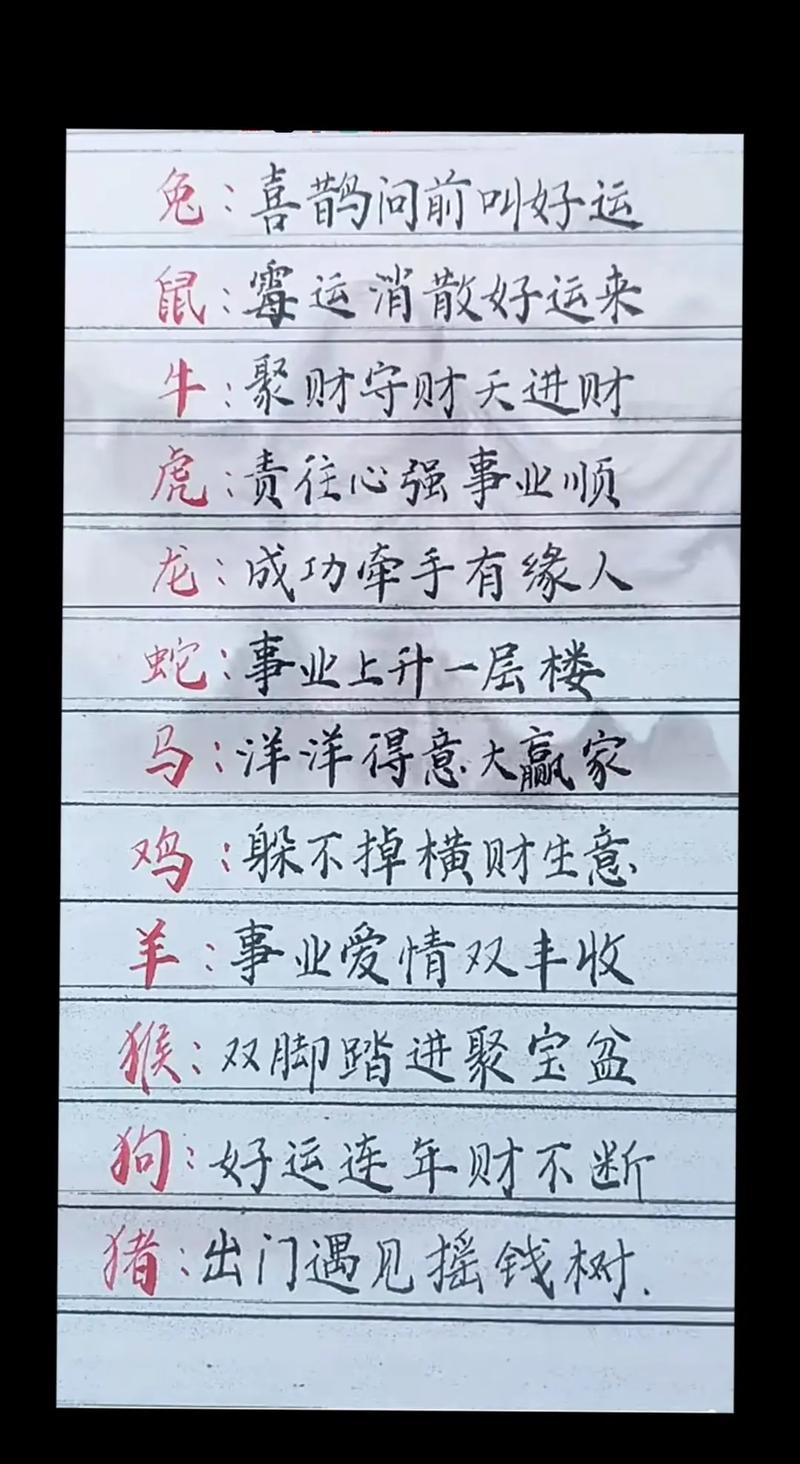 兔：喜鹊问前叫好运
鼠：霉运消散好运来
牛：聚财守财天进财
虎：责任心强事业顺
龙：成功牵手有缘人
蛇：事业上升一层楼
马：洋洋得意大赢家
鸡：躲不掉横财生意
羊：事业爱情双丰收
猴：双脚踏进聚宝盆
狗：好运连年财不断
猪：出门遇见摇钱树.